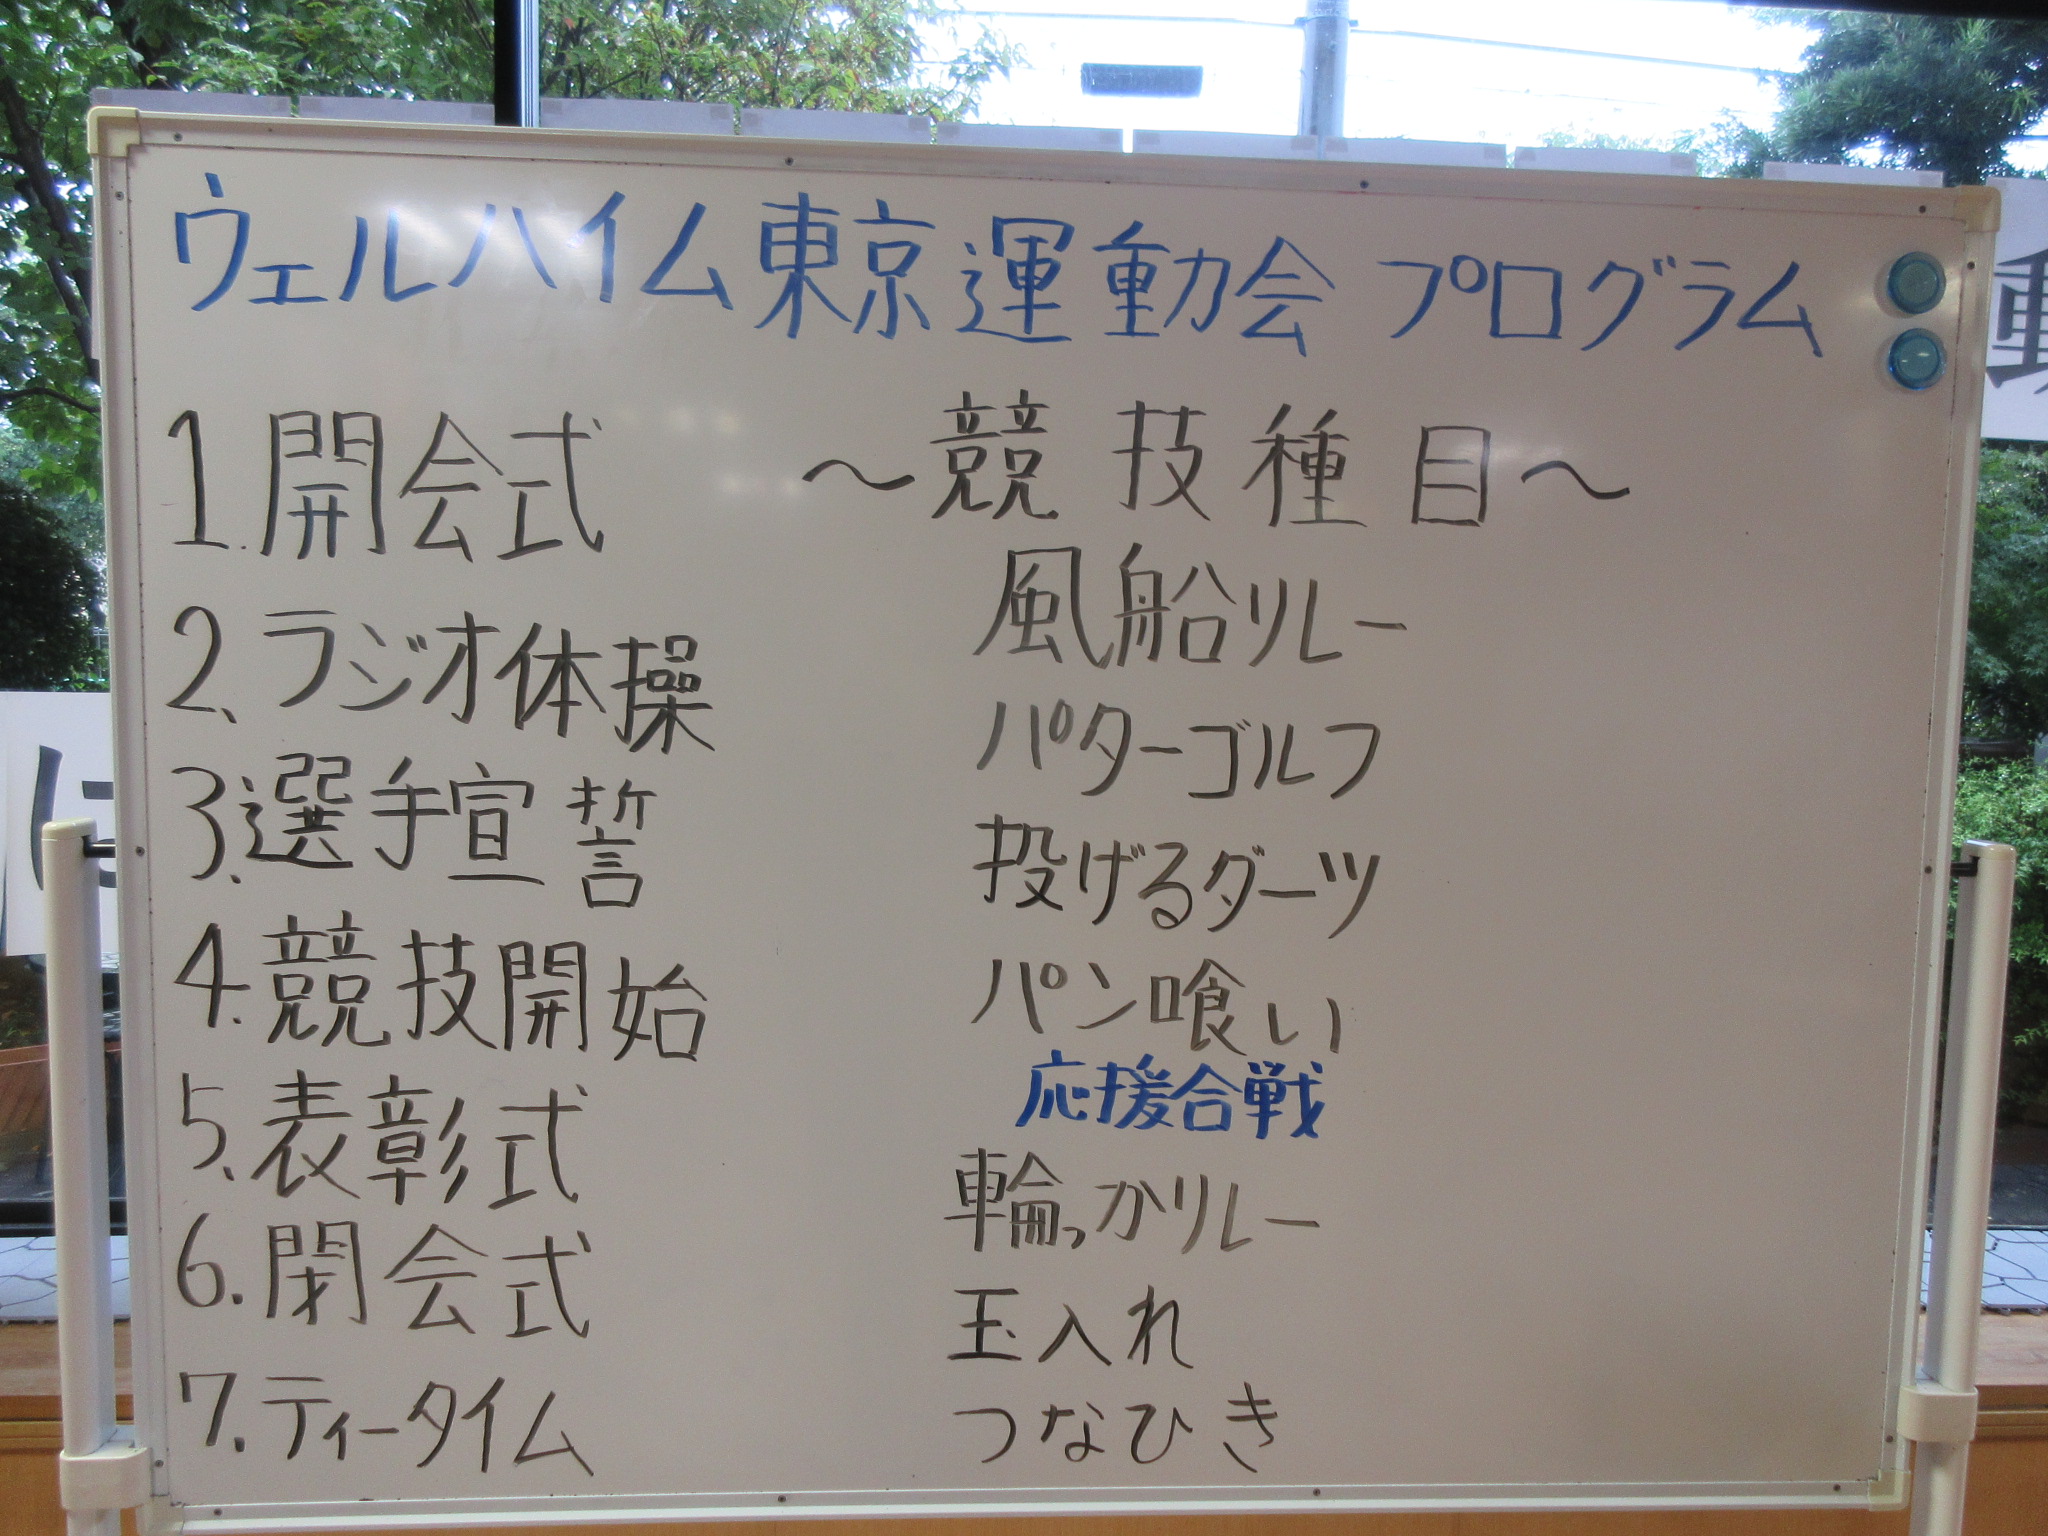 ウェルハイム東京運動会 プログラム
1.開会式
2、ラジオ体操
3.選手宣誓
4.競技開始
5、表彰式
6.閉会式
7.ティータイム
～競技種目～
風船リレー
パターゴルフ
投げるダーツ
パン喰い
応援合戦
輪っかリレー
玉入れ
つなひき
動
は